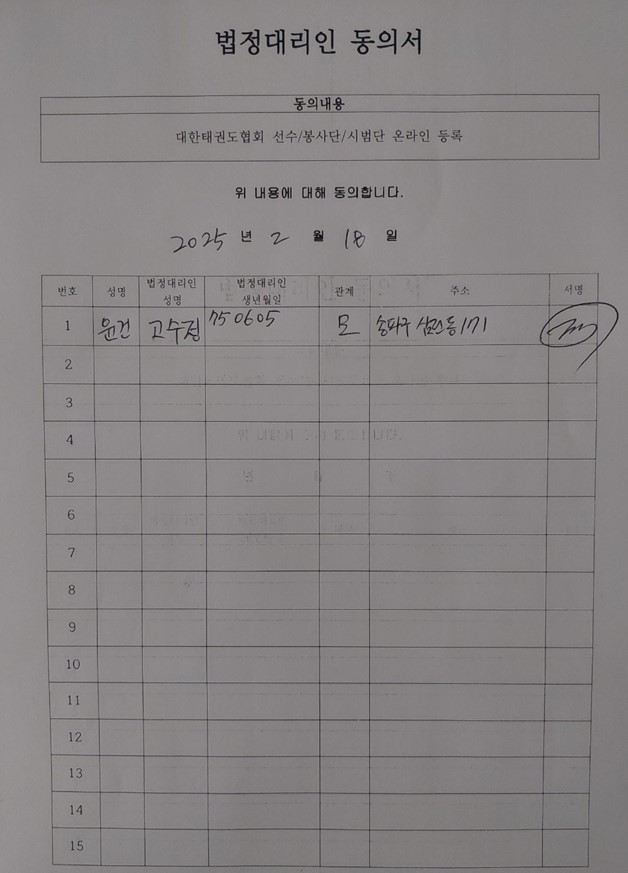 법정대리인 동의서
동의내용
대한태권도협회 선수/봉사단/시범단 온라인 등록
위 내용에 대해 동의합니다.
2025 년 2 월 18 일
번호 성명 법정대리인 성명 법정대리인 생년월일 관계 주소 서명
1 윤건 고수정 750605 모 송파구 삼전동 171
2
3
4
5
6
7
8
9
10
11
12
13
14
15